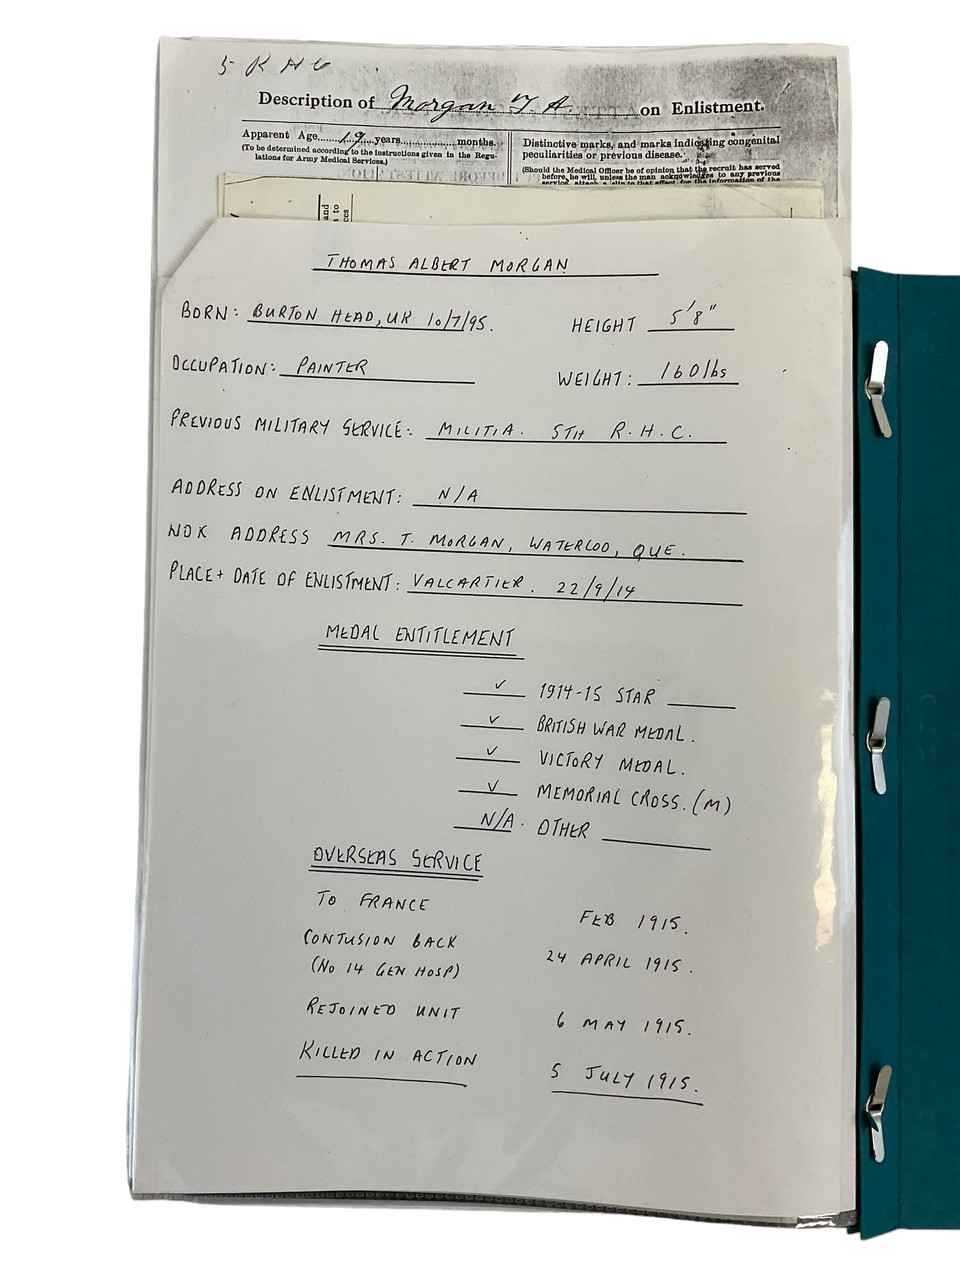 5 R H C
Description of Morgan T. A. on Enlistment.
Apparent Age 19 years months.
(To be determined according to the instructions given in the Regu-
lations for Army Medical Services.)
Distinctive marks, and marks indicating congenital
peculiarities or previous disease.
(Should the Medical Officer be of opinion that the recruit has served
before, he will, unless the man acknowledges to any previous
service, attach a slip to that effect, for the information of the
and
s to
ces
THOMAS ALBERT MORGAN
BORN: BURTON HEAD, UK 10/7/95.
HEIGHT 5'8"
OCCUPATION: PAINTER
WEIGHT: 160 lbs
PREVIOUS MILITARY SERVICE: MILITIA. 5TH R.H.C.
ADDRESS ON ENLISTMENT: N/A
NOK ADDRESS MRS. T. MORGAN, WATERLOO, QUE.
PLACE + DATE OF ENLISTMENT: VALCARTIER. 22/9/14
MEDAL ENTITLEMENT
✓ 1914-15 STAR
✓ BRITISH WAR MEDAL.
✓ VICTORY MEDAL.
✓ MEMORIAL CROSS. (M)
N/A. OTHER
OVERSEAS SERVICE
TO FRANCE FEB 1915.
CONTUSION BACK 24 APRIL 1915.
(NO 14 GEN HOSP)
REJOINED UNIT 6 MAY 1915.
KILLED IN ACTION 5 JULY 1915.